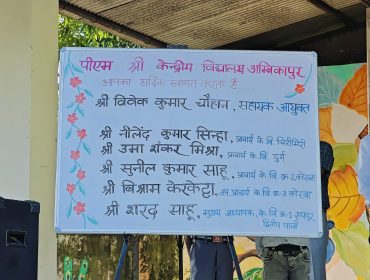 पीएम श्री केन्द्रीय विद्यालय अम्बिकापुर
आपका हार्दिक स्वागत करता है
श्री विवेक कुमार चौहान, सहायक आयुक्त
श्री नीलेंद्र कुमार सिन्हा, प्राचार्य के.वि. चिरीमिरी
श्री उमा शंकर मिश्रा, प्राचार्य के.वि. दुर्ग
श्री सुनील कुमार साहू, प्राचार्य के.वि. क्र-2 कोरबा
श्री बिश्राम केरकेट्टा, उप प्राचार्य के.वि. क्र-3 कोरबा
श्री शरद साहू, मुख्य अध्यापक, के.वि. क्र-1 रायपुर
द्वितीय पाली